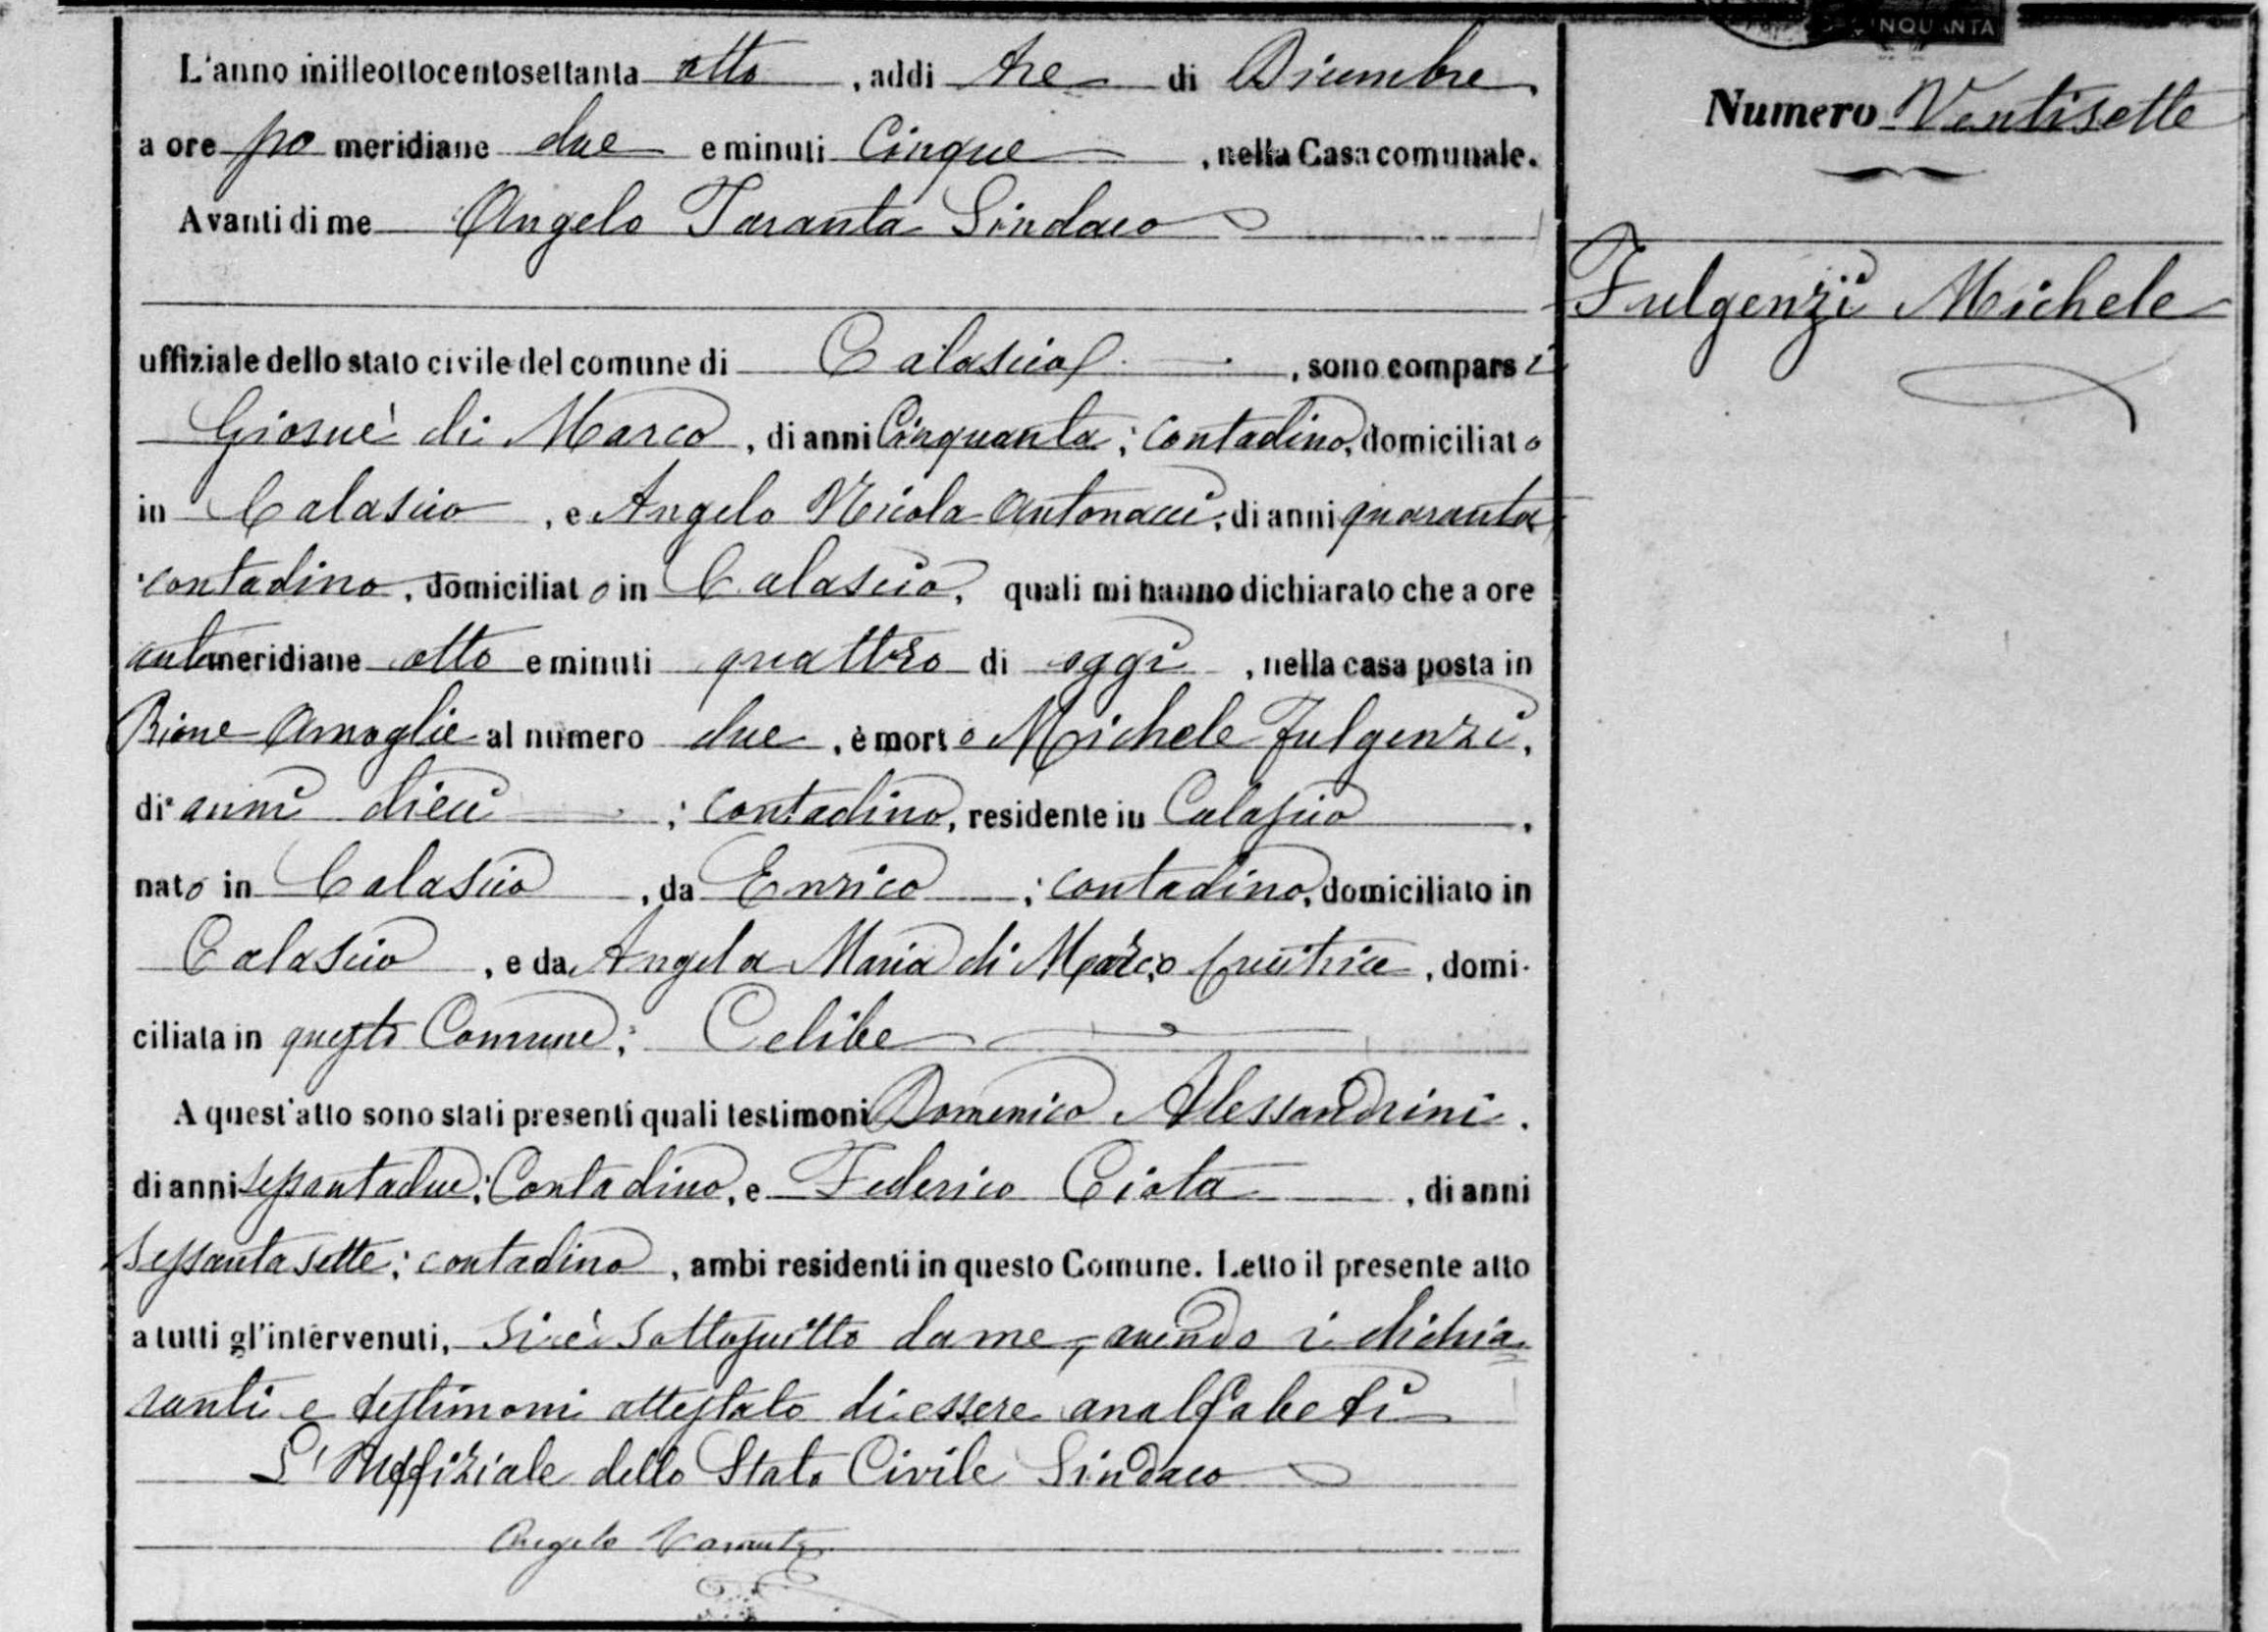 CINQUANTA
L'anno milleottocentosettanta otto, addi tre di Dicembre,
a ore po meridiane due e minuti Cinque, nella Casa comunale.
Avanti di me Angelo Taranta Sindaco
uffiziale dello stato civile del comune di Calascio, sono comparsi
Giosuè di Marco, di anni Cinquanta; contadino, domiciliato
in Calascio, e Angelo Nicola Antonacci, di anni quaranta
contadino, domiciliato in Calascio, quali mi hanno dichiarato che a ore
antimeridiane otto e minuti quattro di oggi, nella casa posta in
Rione Amoglie al numero due, è morto Michele Fulgenzi,
di anni dieci; contadino, residente in Calascio,
nato in Calascio, da Enrico; contadino, domiciliato in
Calascio, e da Angela Maria di Marco, domi-
ciliata in questo Comune; Celibe
A quest'atto sono stati presenti quali testimoni Domenico Alessandrini.
di anni sessantadue; Contadino, e Federico Ciota, di anni
sessantasette; contadino, ambi residenti in questo Comune. Letto il presente atto
a tutti gl'intervenuti, si è sottoscritto da me, avendo i dichia
ranti e testimoni attestato di essere analfabeti
L'Uffiziale dello Stato Civile Sindaco
Angelo Taranta
Numero Ventisette
Fulgenzi Michele